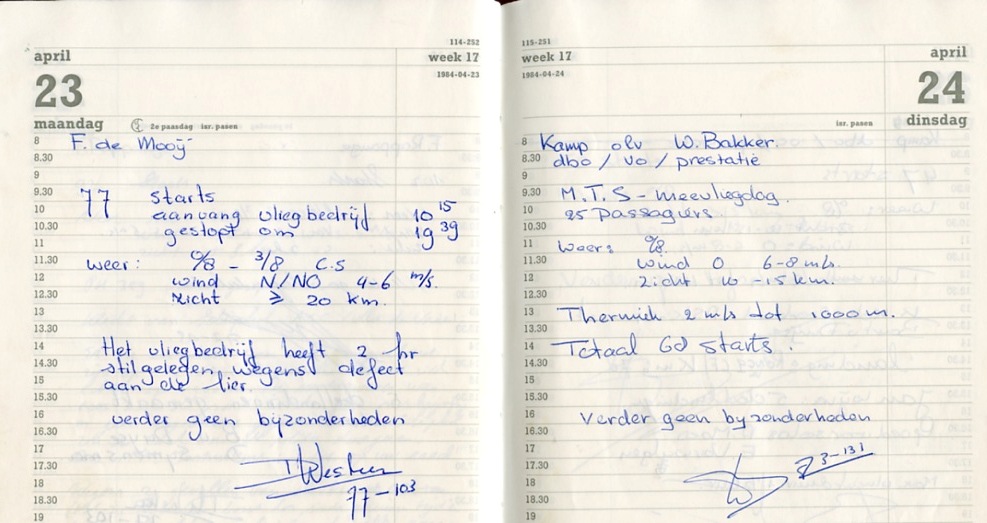 114-252
april
week 17
1984-04-23
23
maandag
2e paasdag isr. pasen
8 F. de Mooij
8.30
9
9.30 77 Starts
10 aanvang vliegbedrijf 10 15
10.30 gestopt om 19 39
11
11.30 weer: 0/8 - 3/8 C.S
12 wind N/NO 4-6 m/s.
12.30 zicht ≥ 20 km.
13
13.30
14 Het vliegbedrijf heeft 2 hr
14.30 stilgelegen wegens defect
15 aan de lier.
15.30
16 verder geen bijzonderheden
16.30
17
17.30
18 77-103
18.30
19
115-251
week 17
april
1984-04-24
24
isr. pasen
dinsdag
8 Kamp olv W. Bakker.
8.30 dbo / vo / prestatie
9
9.30 M.T.S - meevliegdag.
10 25 passagiers
10.30
11 weer: 0/8.
11.30 wind O 6-8 m/s.
12 zicht 10 - 15 km.
12.30
13 Thermiek 2 m/s tot 1000 m.
13.30
14 Totaal 60 starts.
14.30
15
15.30
16 Verder geen bijzonderheden
16.30
17
17.30 3-131
18
18.30
19